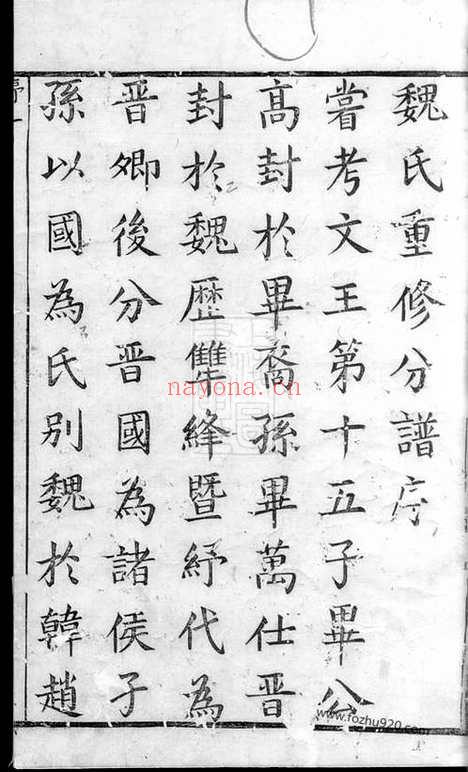 魏氏重修分譜序
嘗考文王第十五子畢公
高封於畢裔孫畢萬仕晉
封於魏歷犨絳暨紓代為
晉卿後分晉國為諸侯子
孫以國為氏別魏於韓趙
nayona.cn
www.fozhu920.com